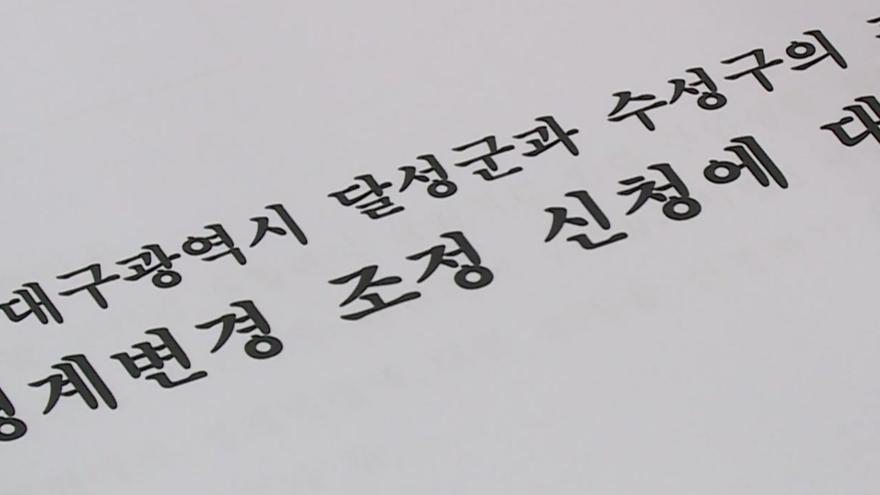 대구광역시 달성군과 수성구의
경계변경 조정 신청에 대